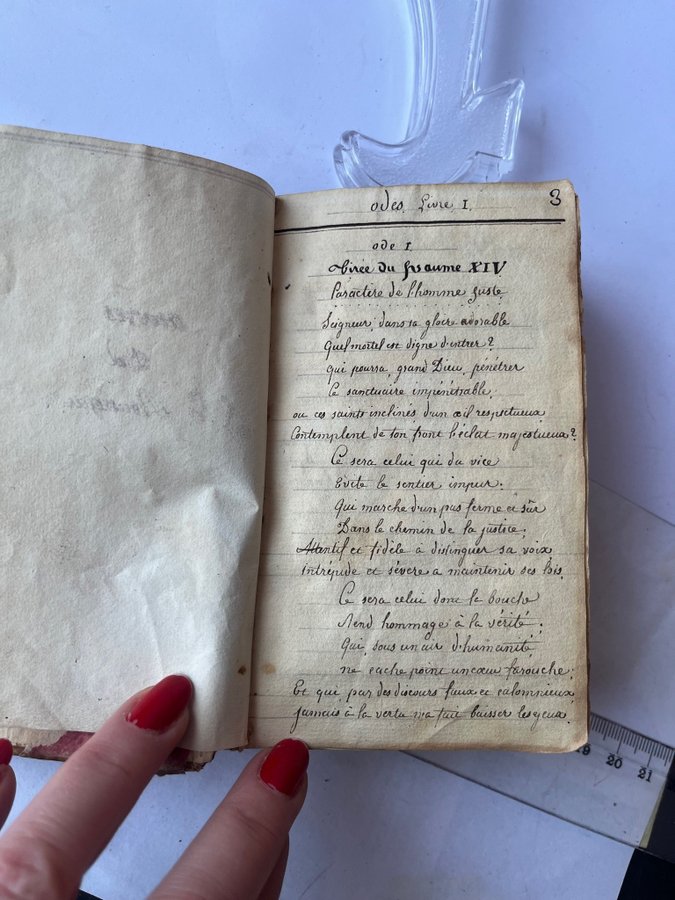 odes. Livre. I.
3
ode 1.
Tirée du psaume XIV
Caractère de l'homme juste.
Seigneur, dans ta gloire adorable
Quel mortel est digne d'entrer?
qui pourra, grand Dieu, pénétrer
Ce sanctuaire impénétrable,
ou ces saints inclinés d'un œil respectueux
Contemplent de ton front l'éclat majestueux?
Ce sera celui qui du vice
Evite le sentier impur.
Qui marche d'un pas ferme et sûr
Dans le chemin de la justice;
Attentif et fidèle à distinguer sa voix
intrépide et sévere a maintenir ses lois.
Ce sera celui dont la bouche
Rend hommage à la vérité;
Qui, sous un air d'humanité,
ne cache point un cœur farouche;
Et qui, par des discours faux et calomnieux,
jamais à la vertu n'a fait baisser les yeux.
19 20 21